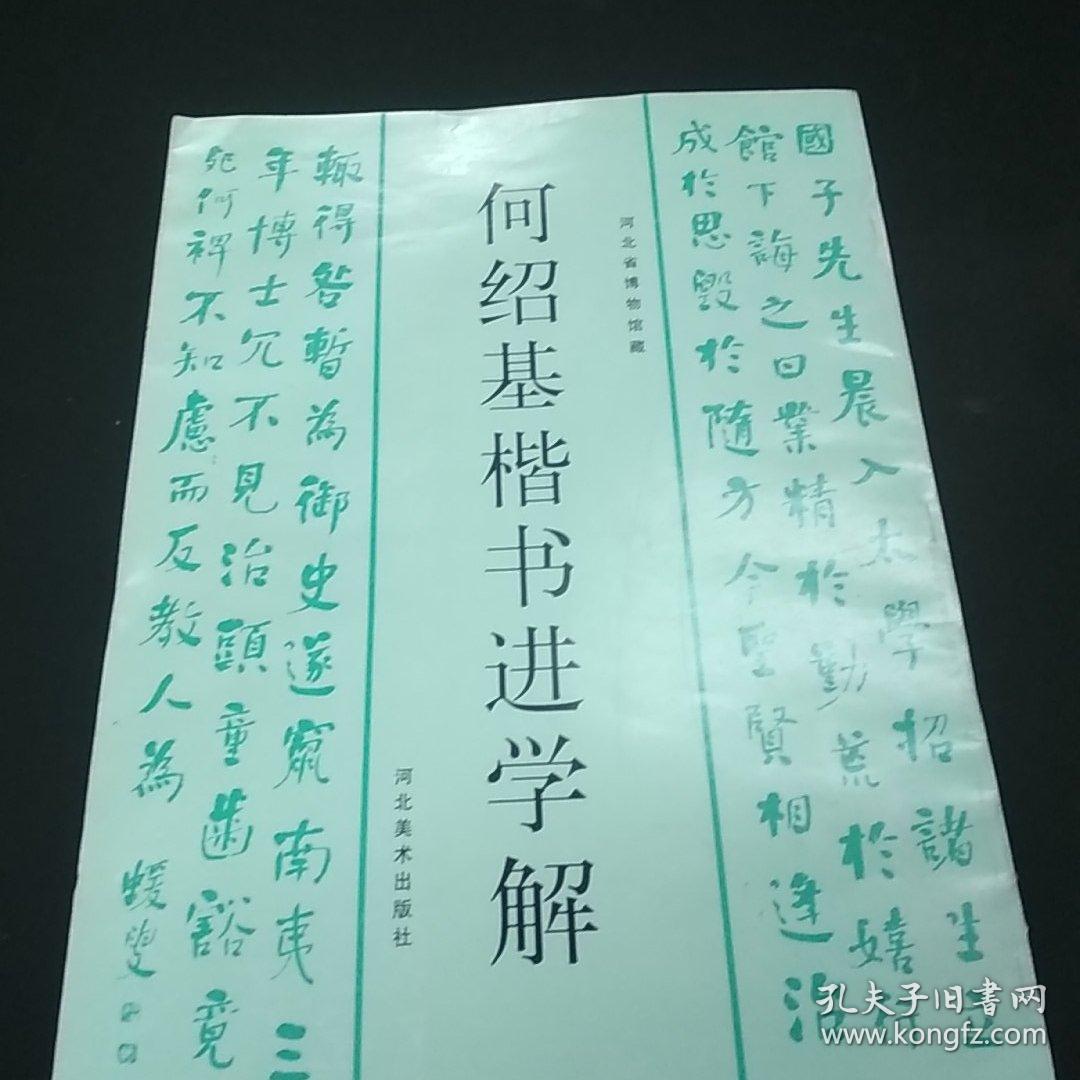 國子先生晨入太學招諸生立
館下誨之曰業精於勤荒於嬉
成於思毀於隨方今聖賢相逢治
河北省博物馆藏
何绍基楷书进学解
河北美术出版社
輒得咎暫為御史遂竄南夷三
年博士冗不見治頭童齒豁竟
死何裨不知慮而反教人為
蝯叟
孔夫子旧书网
www.kongfz.com